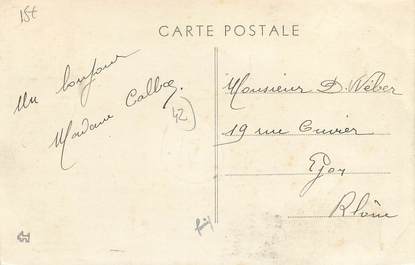 15€
CARTE POSTALE
Un bonjour
Madame
42
Monsieur D. Wéber
19 rue Cuvier
Lyon
Rhône